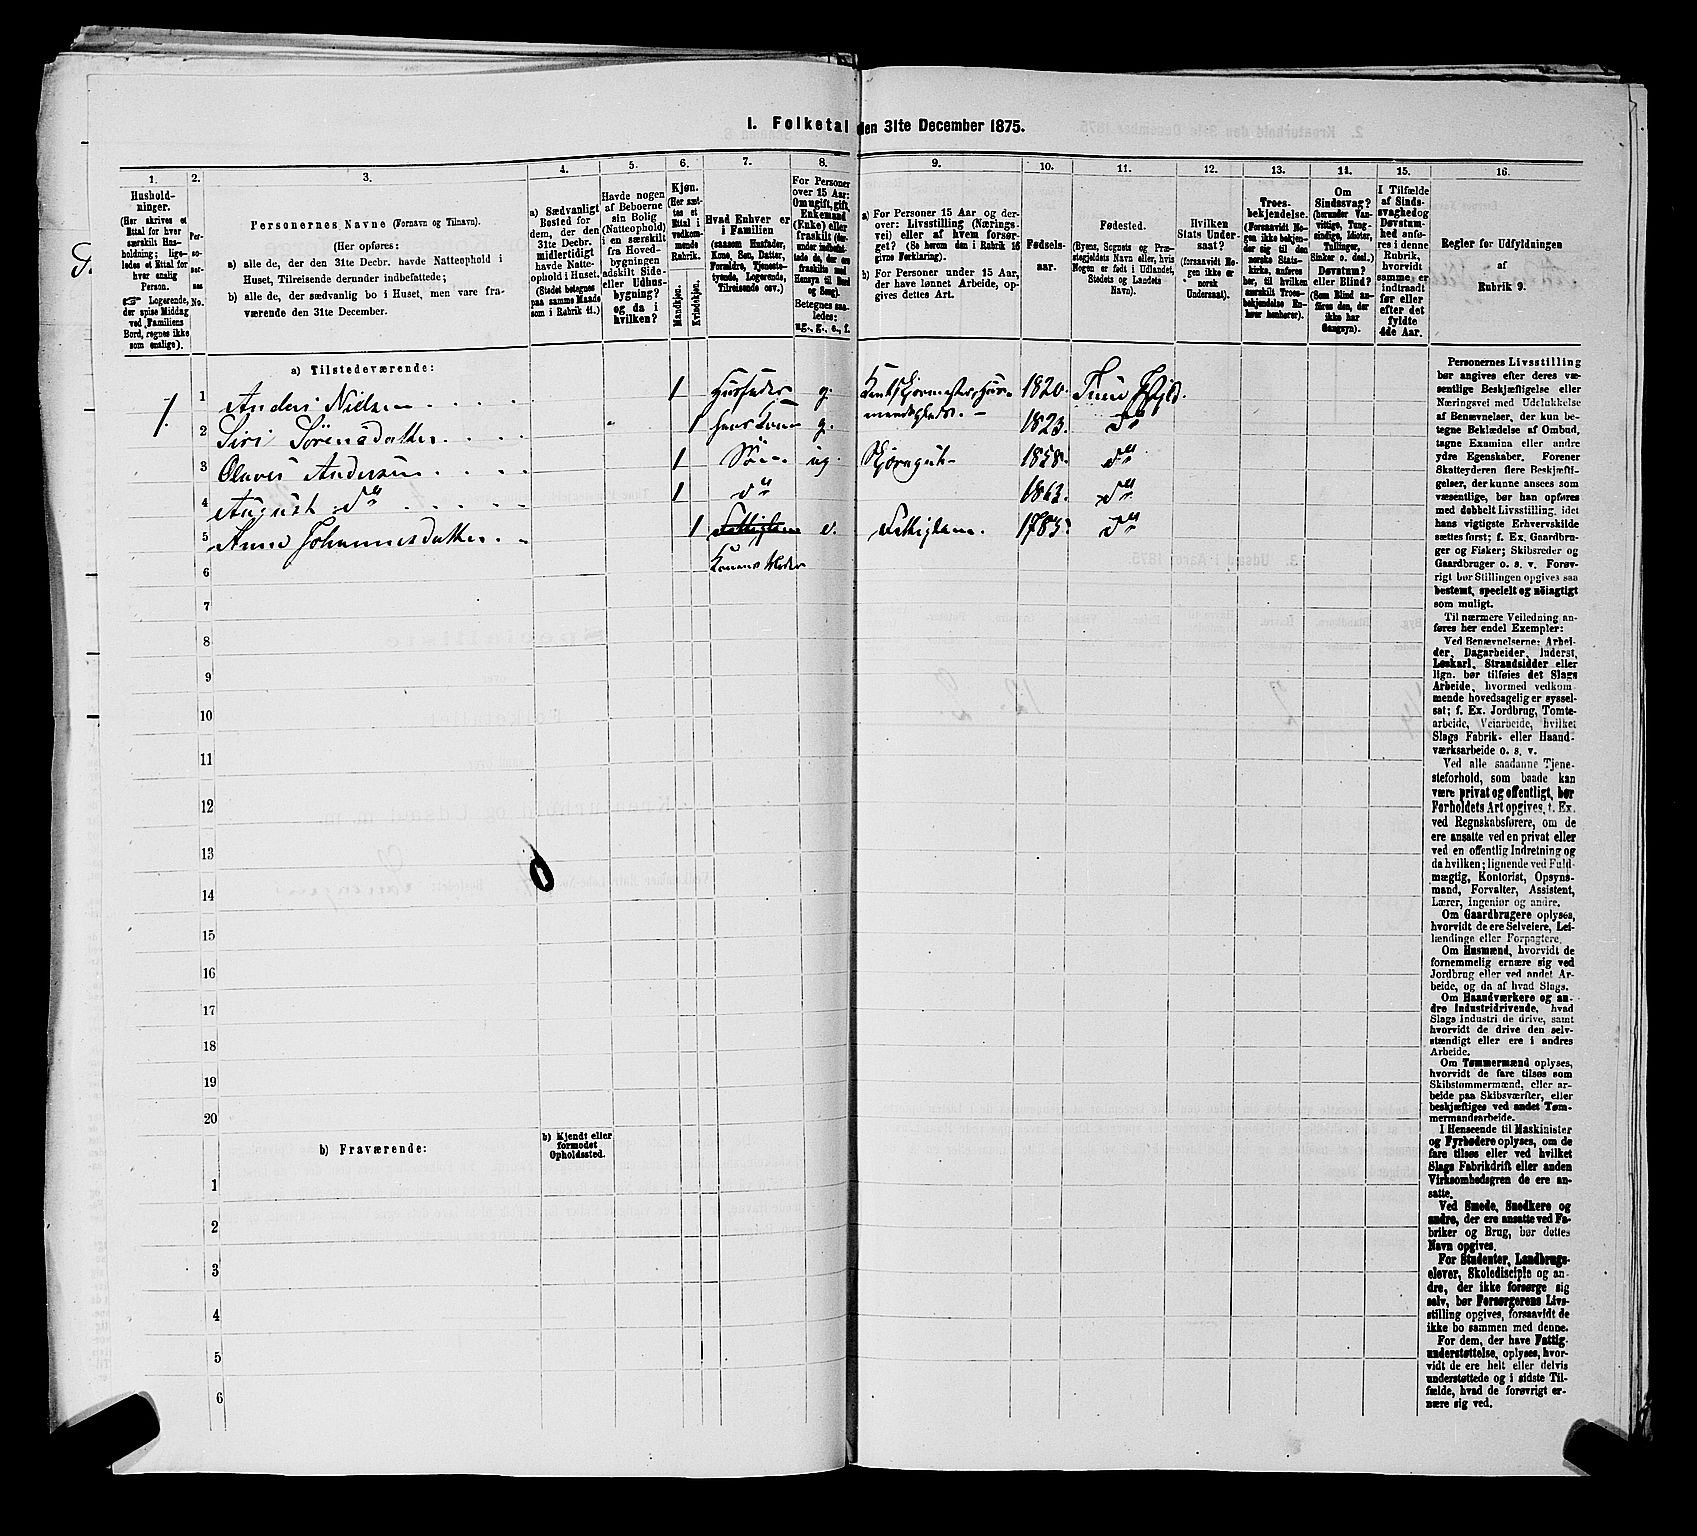 I. Folketal den 31te December 1875.
1. 2. 3. 4. 5. 6. 7. 8. 9. 10. 11. 12. 13. 14. 15. 16.
Hushold-
ninger.
(Her skrives et
Ettal for hver
særskilt Hus-
holdning; lige-
ledes et Ettal for
hver enslig
Person.
☞ Logerende,
der spise Middag
ved Familiens
Bord, regnes ikke
som enslige).
Per-
so-
ner-
nes
No.
Personernes Navne (Fornavn og Tilnavn).
(Her opføres:
a) alle de, der den 31te Decbr. havde Natteophold i
Huset, Tilreisende derunder indbefattede;
b) alle de, der sædvanlig bo i Huset, men vare fra-
værende den 31te December.
a) Sædvanligt
Bosted for
dem, der den
31te Decbr.
midlertidigt
havde Natte-
ophold i Huset.
(Stedet betegnes
paa samme Maade
som i Rubrik 11.)
Havde nogen
af Beboerne
sin Bolig
(Natteophold)
i en særskilt
fra Hoved-
bygningen
adskilt Side-
eller Udhus-
bygning?
og da i
hvilken?
Kjøn.
(Her sæt-
tes et
Ettal i
vedkom-
mende
Rubrik.
Mandkjøn.
Kvindekjøn.
Hvad Enhver er
i Familien
(saasom Husfader,
Kone, Søn, Datter,
Forældre, Tjeneste-
tyende, Logerende,
Tilreisende osv.)
For Personer
over 15 Aar:
Om ugift, gift,
Enkemand
(Enke) eller
fraskilt
Betegnes saa-
ledes:
ug., g., e., f.
a) For Personer 15 Aar og der-
over: Livsstilling (Nærings-
vei) eller af hvem forsør-
get? (Se herom den i Rubrik 16
givne Forklaring).
b) For Personer under 15 Aar,
der have lønnet Arbeide, op-
gives dettes Art.
Fødsels-
aar.
Fødested.
(Byens, Sognets og Præ-
stegjeldets Navn eller, hvis
Nogen er født i Udlandet,
Stedets og Landets
Navn).
Hvilken
Stats Under-
saat?
(forsaavidt No-
gen ikke er
norsk
Undersaat).
Troes-
bekjendelse.
(Forsaavidt No-
gen ikke bekjen-
der sig til den
norske Stats-
kirke, anføres
her, til hvilken
særskilt Troes-
bekjendelse En-
hver henhører).
Om
Sindssvag?
(herunder Van-
vittige, Tung-
sindige, Idioter,
Tullinger,
Sinker o. desl.)
Døvstum?
eller Blind?
(Som Blind an-
føres den, der
ikke har
Gangsyn).
I Tilfælde
af Sinds-
svaghed og
Døvstum-
hed anfø-
res i denne
Rubrik,
hvorvidt
samme er
indtraadt
før eller
efter det
fyldte
4de Aar.
Regler for Udfyldningen
af
Rubrik 9.
a) Tilstedeværende:
1. 1 Anders Nielsen 1 Husfader g. 1820. Tune Pgjld.
2 Siri Sörensdatter 1 hans Kone g. 1823. do
3 Olaves Andersen 1 Sön ug. 1858. do
4 August do 1 do 1863. do
5 Anne Johannesdatter 1 Fattiglem e. Fattiglem. 1785. do
6 Konens Moder
7
8
9
10
11
12
13
14
15
16
17
18
19
20
b) Fraværende:
b) Kjendt eller
formodet
Opholdssted.
1
2
3
4
5
6
Personernes Livsstilling
bør angives efter deres væ-
sentlige Beskjæftigelse eller
Næringsvei med Udelukkelse
af Benævnelser, der kun be-
tegne Beklædelse af Ombud,
tagne Examina eller andre
ydre Egenskaber. Forener
Skatteyderen flere Beskjæfti-
gelser, der kunne ansees som
væsentlige, bør han opføres
med dobbelt Livsstilling, idet
hans vigtigste Erhvervskilde
sættes først; f. Ex. Gaardbru-
ger og Fisker; Skibsreder og
Gaardbruger o. s. v. Forøv-
rigt bør Stillingen opgives saa
bestemt, specielt og nöiagtigt
som muligt.
Til nærmere Veiledning an-
føres her endel Exempler:
Ved Benævnelserne: Arbei-
der, Dagarbeider, Inderst,
Løskarl, Strandsidder eller
lign. bør tilføies det Slags
Arbeide, hvormed vedkom-
mende hovedsagelig er syssel-
sat; f. Ex. Jordbrug, Tomte-
arbeide, Veiarbeide, hvilket
Slags Fabrik- eller Haand-
værksarbeide o. s. v.
Ved alle saadanne Tjene-
steforhold, som baade kan
være privat og offentligt, bør
Forholdets Art opgives, f. Ex.
ved Regnskabsførere, om de
ere ansatte ved en privat eller
ved en offentlig Indretning og
da hvilken; lignende ved Fuld-
mægtig, Kontorist, Opsyns-
mand, Forvalter, Assistent,
Lærer, Ingeniør og andre.
Om Gaardbrugere oplyses,
hvorvidt de ere Selveiere, Lei-
lændinge eller Forpagtere.
Om Husmænd, hvorvidt de
fornemmelig ernære sig ved
Jordbrug eller ved andet Ar-
beide, og da af hvad Slags.
Om Haandværkere og an-
dre Industridrivende, hvad
Slags Industri de drive, samt
hvorvidt de drive den selv-
stændigt eller ere i andres
Arbeide.
Om Tømmermænd oplyses,
hvorvidt de fare tilsøs som
Skibstømmermænd, eller ar-
beide paa Skibsværfter, eller
beskjæftiges ved andet Tøm-
mermandsarbeide.
I Henseende til Maskinister
og Fyrbødere oplyses, om de
fare tilsøs eller ved hvilket
Slags Fabrikdrift eller anden
Virksomhedsgren de ere an-
satte.
Ved Smede, Snedkere og
andre, der ere ansatte ved Fa-
briker og Brug, bør dettes
Navn opgives.
For Studenter, Landbrugs-
elever, Skoledisciple og an-
dre, der ikke forsørge sig
selv, bør Forsørgerens Livs-
stilling opgives, forsaavidt de
ikke bo sammen med denne.
For dem, der have Fattig-
understøttelse, oplyses, hvor-
vidt de ere helt eller delvis
understøttede og i sidste Til-
fælde, hvad de forøvrigt er-
nære sig ved.